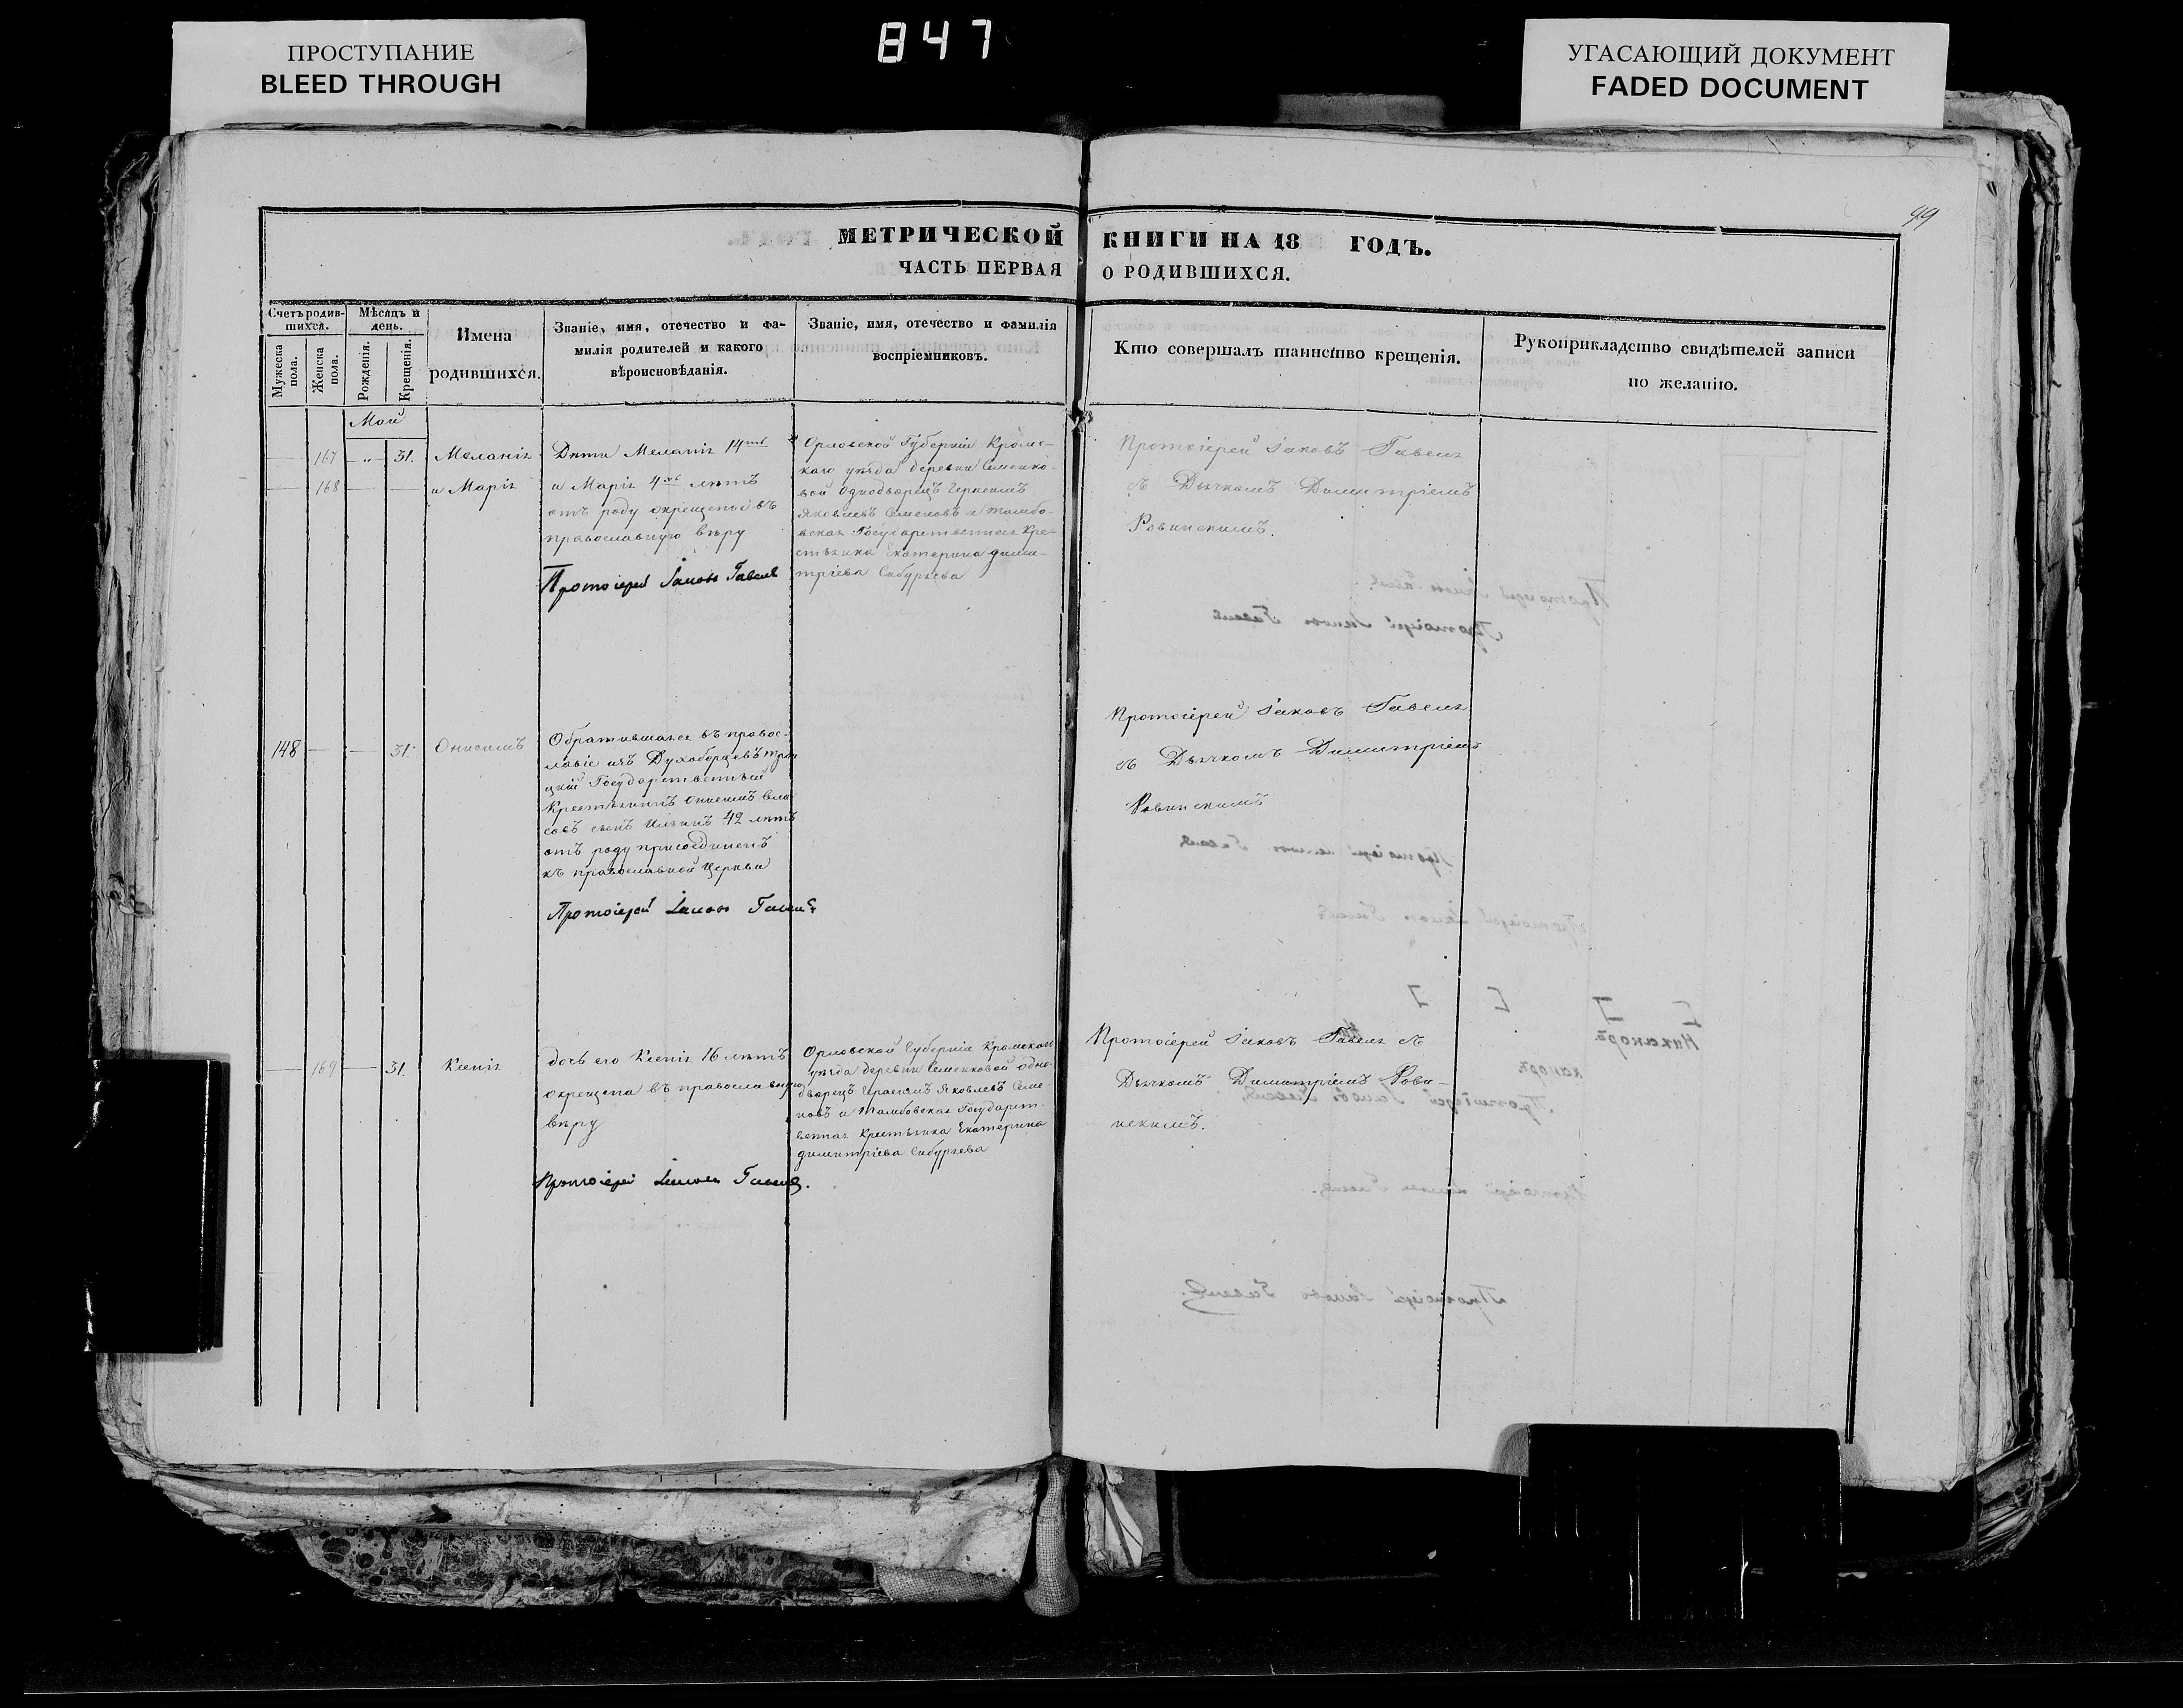 ПРОСТУПАНИЕ
BLEED THROUGH
847
УГАСАЮЩИЙ ДОКУМЕНТ
FADED DOCUMENT
99
МЕТРИЧЕСКОЙ КНИГИ НА 18 ГОДЪ.
ЧАСТЬ ПЕРВАЯ О РОДИВШИХСЯ.
Счетъ родив-
шихся.
Мужеска
пола.
Женска
пола.
Мѣсяцъ и
день.
Рожденія.
Крещенія.
Имена
родившихся.
Званіе, имя, отечество и фа-
милія родителей и какого
вѣроисповѣданія.
Званіе, имя, отечество и фамилія
воспріемниковъ.
Кто совершалъ таинство крещенія.
Рукоприкладство свидѣтелей записи
по желанію.
Май
167 „ 31. Меланія
168 и Марія
Дѣти Меланія 14
и Марія 4 лѣтъ
отъ роду окрещены въ
православную вѣру
Протоіерей Іаковъ Гавель
Орловской Губерніи Кромс-
каго уѣзда деревни Семенко-
вой Однодворецъ Герасимъ
Яковлевъ Семеновъ и Тамбо-
вская Государственная Кре-
стьянка Екатерина Дими-
тріева Сабурьева
Протоіерей Іаковъ Гавель
съ Дьячкомъ Димитріемъ
Ровинскимъ.
148 31. Онисимъ
Обратившагося въ правос-
лавіе изъ Духоборцевъ
Государственный
Крестьянинъ Онисимъ Вла
совъ сынъ 42 лѣтъ
отъ роду присоединенъ
къ православной Церкви
Протоіерей Іаковъ Гавель
Протоіерей Іаковъ Гавель
съ Дьячкомъ Димитріемъ
Ровинскимъ
169 31. Ксенія
дочь его Ксенія 16 лѣтъ
окрещена въ православную
вѣру
Протоіерей Іаковъ Гавель.
Орловской Губерніи Кромской
уѣзда деревни Семенковой одно
дворецъ Герасимъ Яковлевъ Семе-
новъ и Тамбовская Государст-
венная Крестьянка Екатерина
Димитріева Сабурьева
Протоіерей Іаковъ Гавель съ
Дьячкомъ Димитріемъ Рови-
нскимъ.